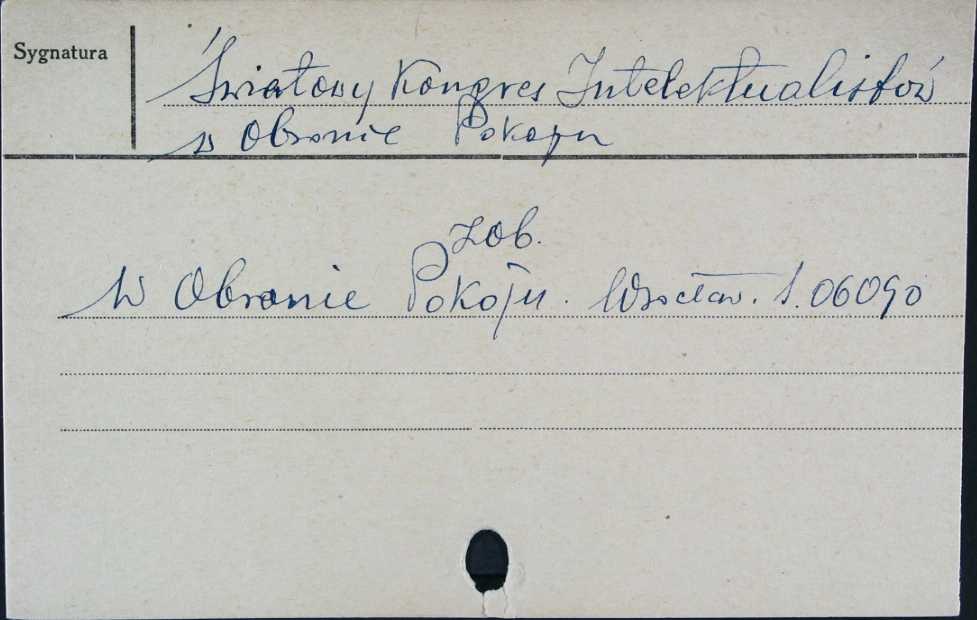 Sygnatura
Światowy Kongres Intelektualistów
w Obronie Pokoju
zob.
W Obronie Pokoju. Wrocław. S. 06090